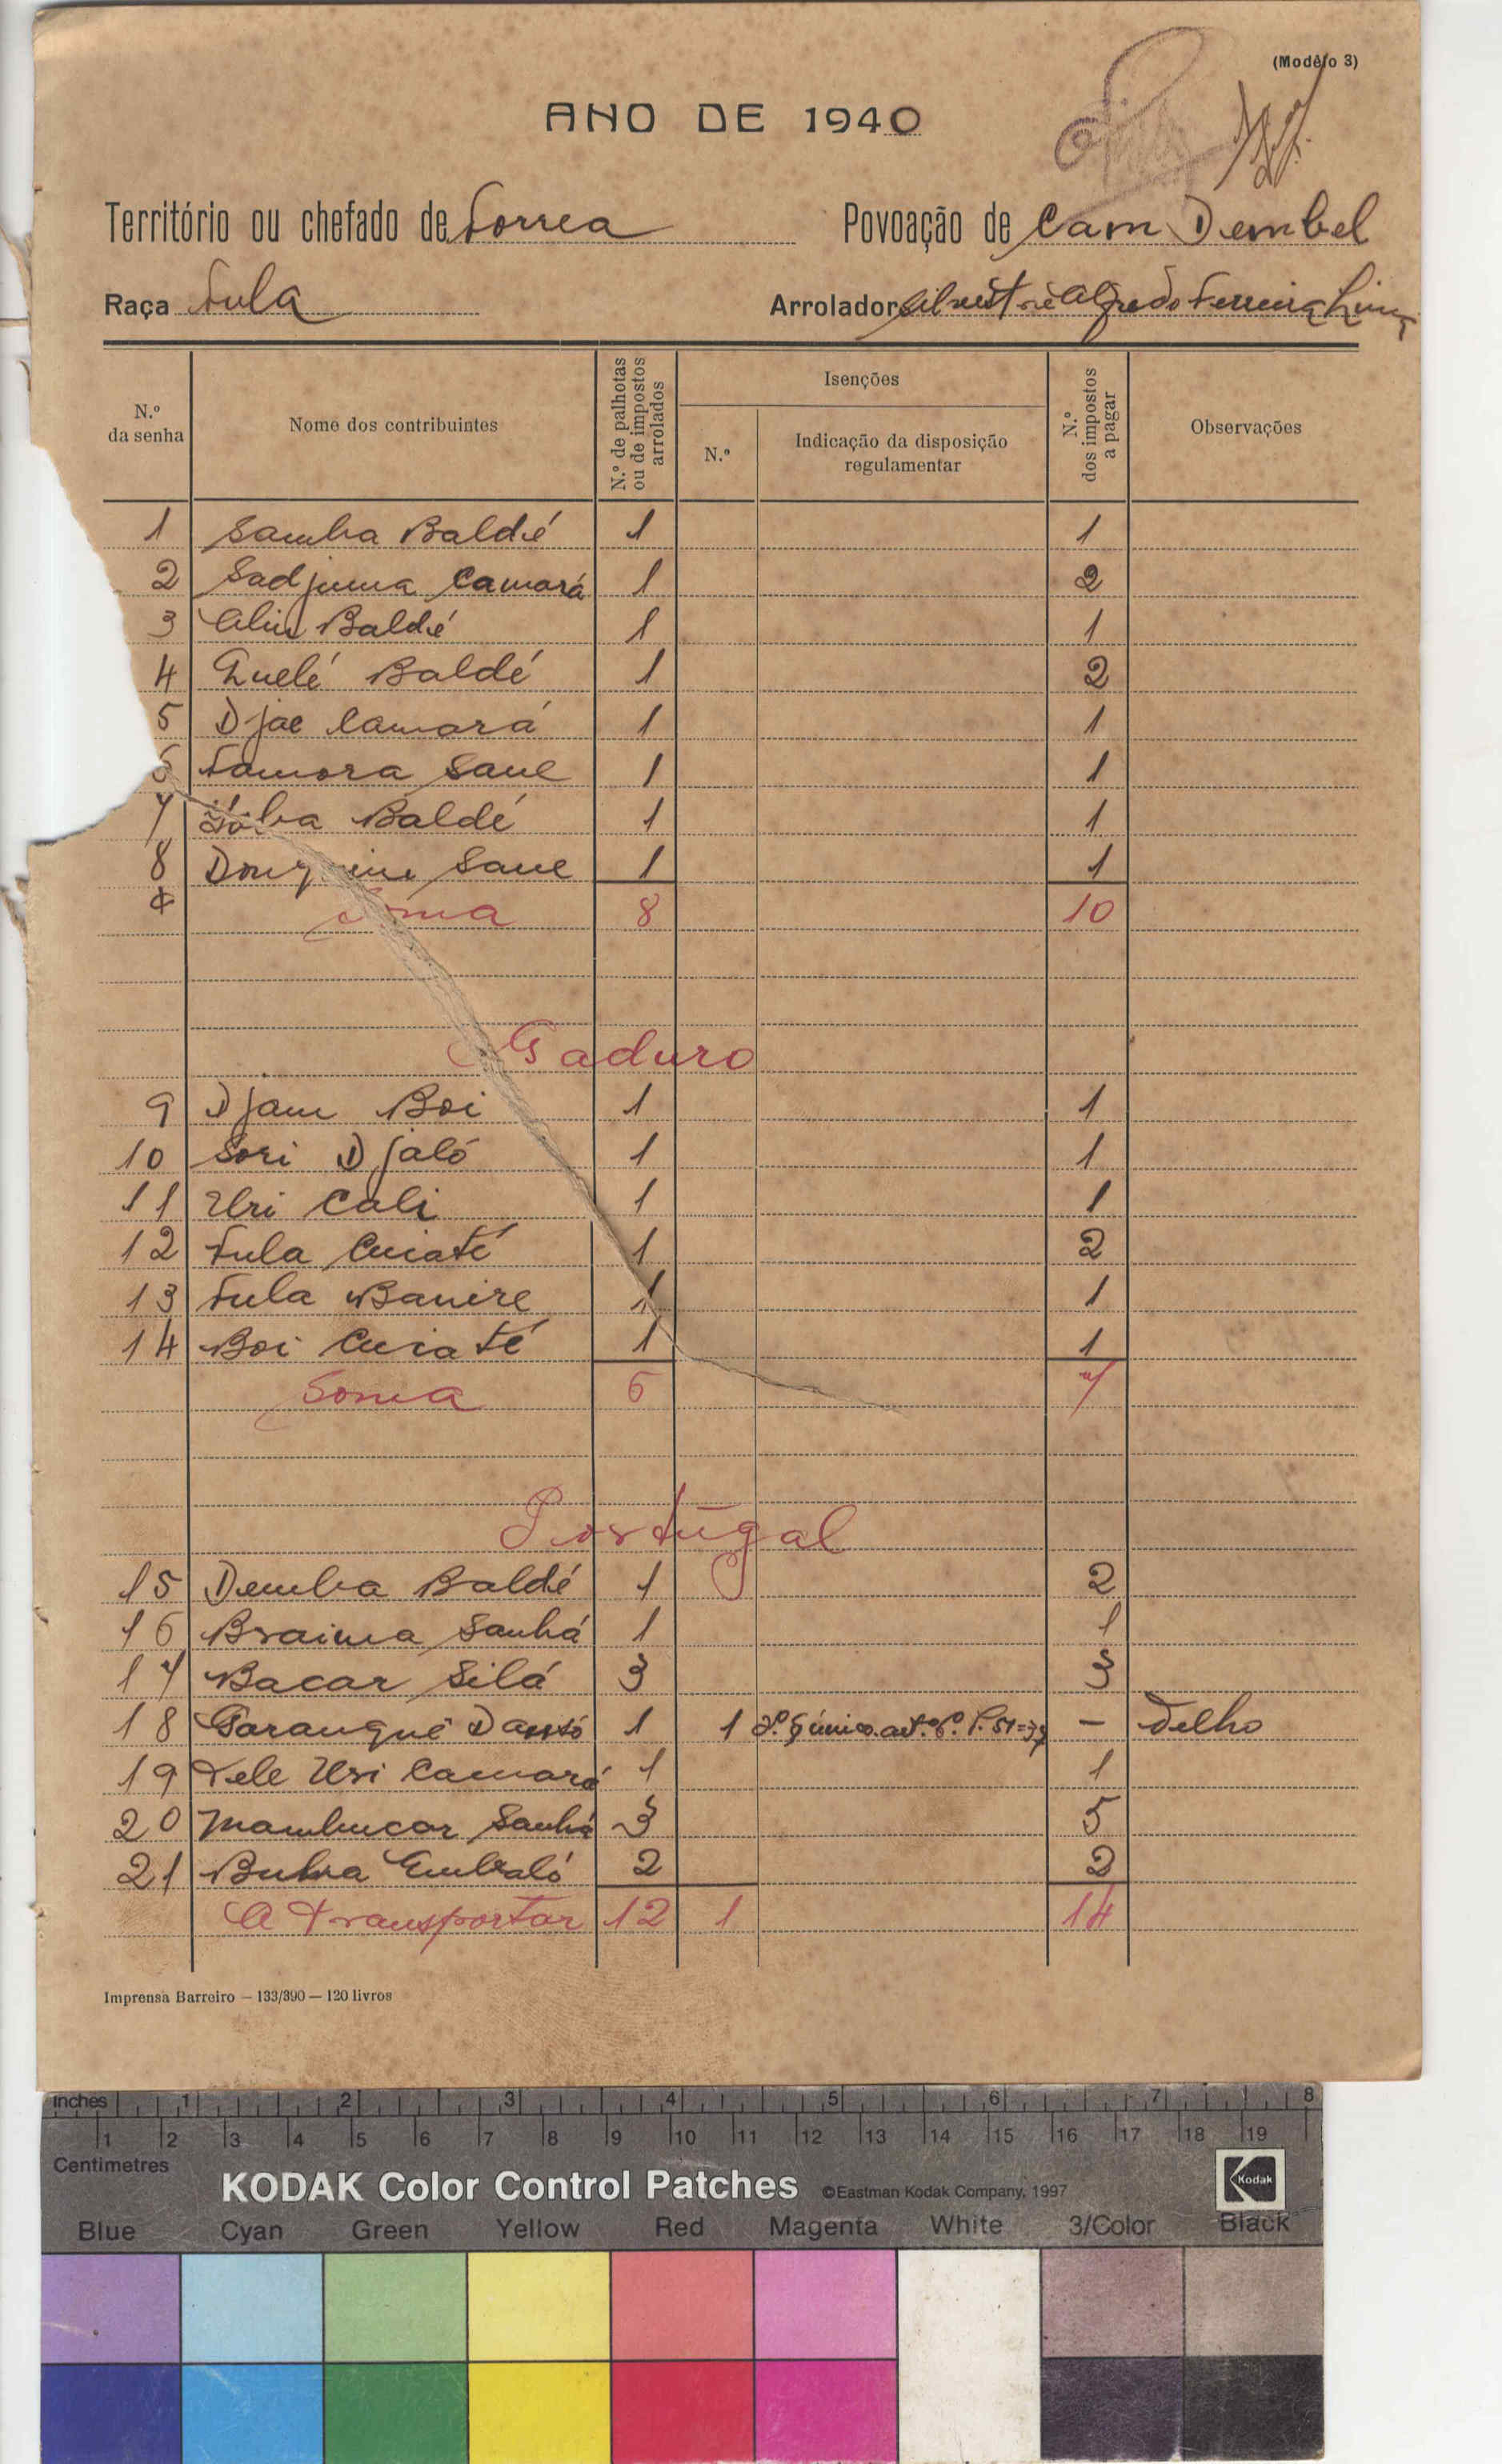 (Modêlo 3)
ANO DE 1940
Território ou chefado de Forrea Povoação de Cam Dembel
Raça Fula Arrolador Silvestre Alfredo Ferreira Lima
N.º da senha
Nome dos contribuintes
N.º de palhotas ou de impostos arrolados
Isenções
N.º
Indicação da disposição regulamentar
N.º dos impostos a pagar
Observações
1 Samba Baldé 1 1
2 Sadjuma Camará 1 2
3 Aliu Baldé 1 1
4 Guelé Baldé 1 2
5 Djae Camará 1 1
6 Famora Sane 1 1
7 Baldé 1 1
8 Sane 1 1
Soma 8 10
Gaduro
9 Djam Boi 1 1
10 Sori Djaló 1 1
11 Uri Cali 1 1
12 Fula Cuiaté 1 2
13 Fula Banire 1 1
14 Boi Cuiaté 1 1
Soma 6 7
Portugal
15 Demba Baldé 1 2
16 Braima Sanhá 1 1
17 Bacar Silá 3 3
18 Garangué Danso 1 1 2.º § único. art.º 6.º — Velho
19 Tele Uri Camará 1 1
20 Mambucar Sanhá 3 5
21 Buba Embaló 2 2
A transportar 12 1 14
Imprensa Barreiro — 133/390 — 120 livros
inches 1 2 3 4 5 6 7 8
1 2 3 4 5 6 7 8 9 10 11 12 13 14 15 16 17 18 19
Centimetres
KODAK Color Control Patches ©Eastman Kodak Company, 1997 Kodak
Blue Cyan Green Yellow Red Magenta White 3/Color Black